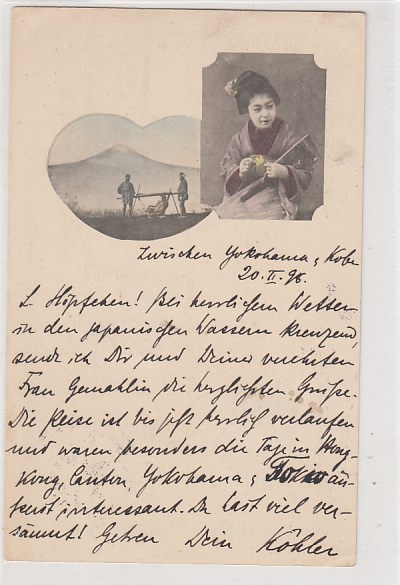 Zwischen Yokohama & Kobe
20.II.98.
L. Höpfchen! Bei herrlichem Wetter
in den japanischen Wassern kreuzend,
sende ich Dir und Deiner verehrten
Frau Gemahlin die herzlichsten Grüße.
Die Reise ist bis jetzt herrlich verlaufen
und waren besonders die Tage in Hong-
Kong, Canton, Yokohama & Tokio äu-
ßerst interessant. Du hast viel ver-
säumt! Getreu Dein Köhler